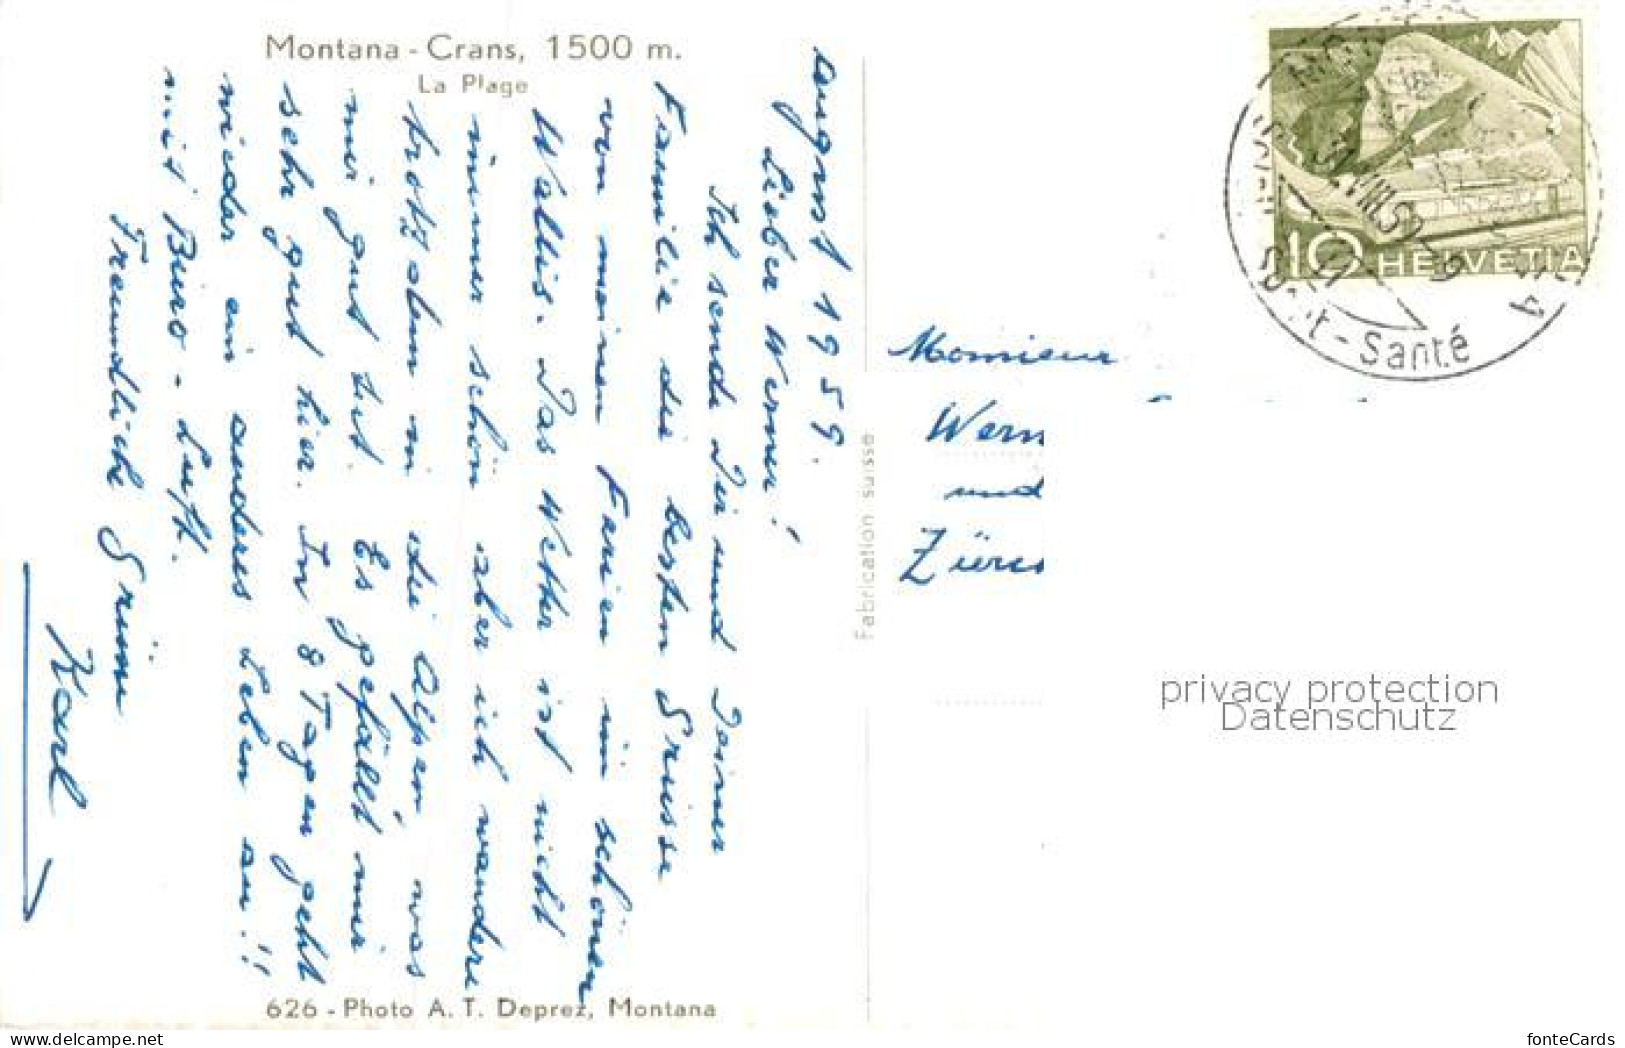 Montana - Crans, 1500 m.
La Plage
August 1959.
Lieber Werner!
Ich sende Dir und Deiner
Familie die besten Grüsse
von meinen Farien im schönen
Wallis. Das Wetter ist nicht
immer schön aber ich wandere
trotzdem in die Alpen, was
mir gut tut. Es gefällt mir
sehr gut hier. In 8 Tagen geht
wieder ein anderes Leben an!!
mit Büro-Luft.
Freundliche Grüsse
Karl
626 - Photo A. T. Deprez, Montana
Fabrication suisse
10 HELVETIA
Santé
Monsieur
Wern
und
Züric
privacy protection
Datenschutz
www.delcampe.net
fonteCards